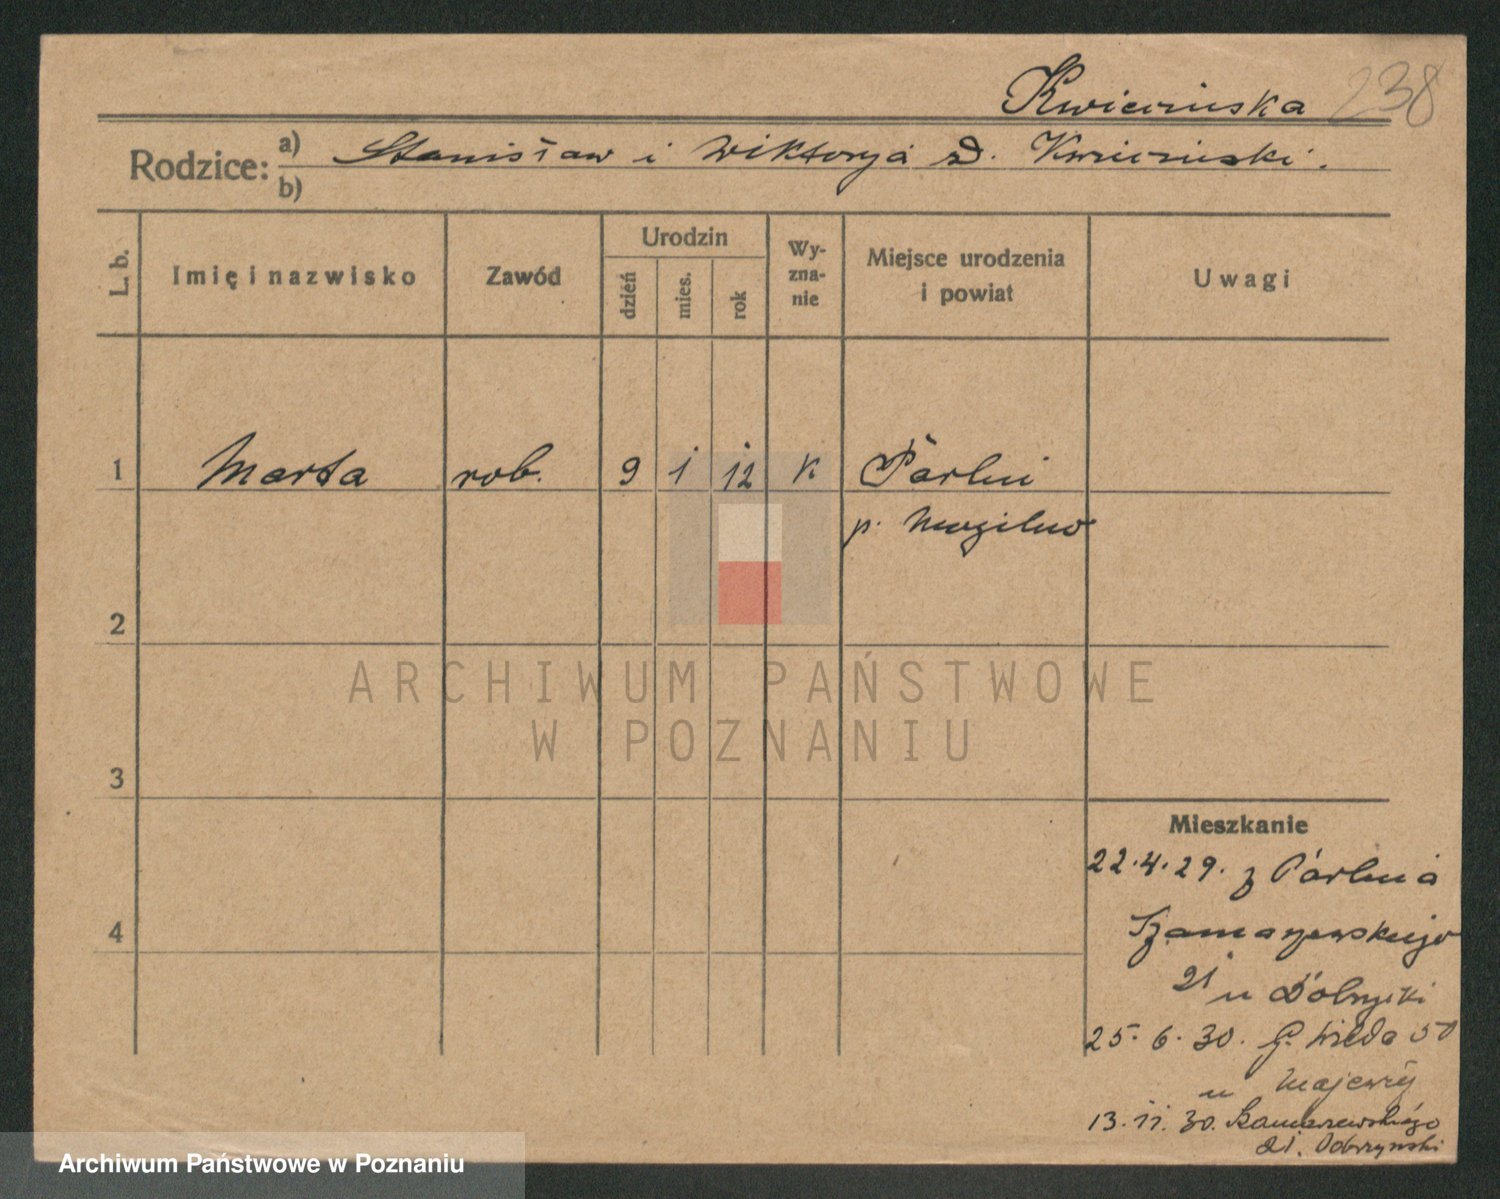 Kwiecinska 238
Rodzice: a) Stanisław i Wiktorya d. Kwiecinski.
b)
L. b.
Imię i nazwisko
Zawód
Urodzin
dzień
mies.
rok
Wy-
zna-
nie
Miejsce urodzenia
i powiat
Uwagi
1 Marta rob. 9 1 12 K Parlin
p. Mogilno
2
3
4
ARCHIWUM PAŃSTWOWE
W POZNANIU
Mieszkanie
22.4.29. z Parlina
21 u
25.6.30. G. Wilda 50
u
13.11.30. Szamarzewskiego
21. Dobrzynski
Archiwum Państwowe w Poznaniu